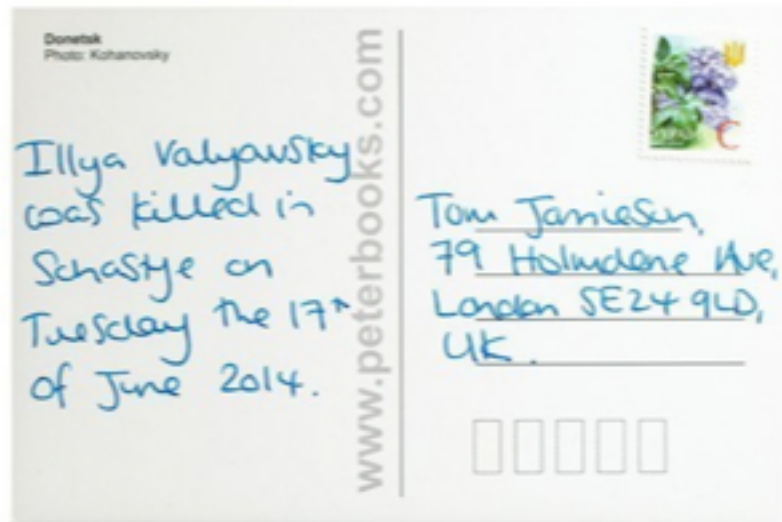 Donetsk
Photo: Kohanovsky
Illya Valyavsky
was killed in
Schastye on
Tuesday the 17th
of June 2014.
www.peterbooks.com
Tom Jamieson,
79 Holmdene Ave,
London SE24 9LD,
UK.